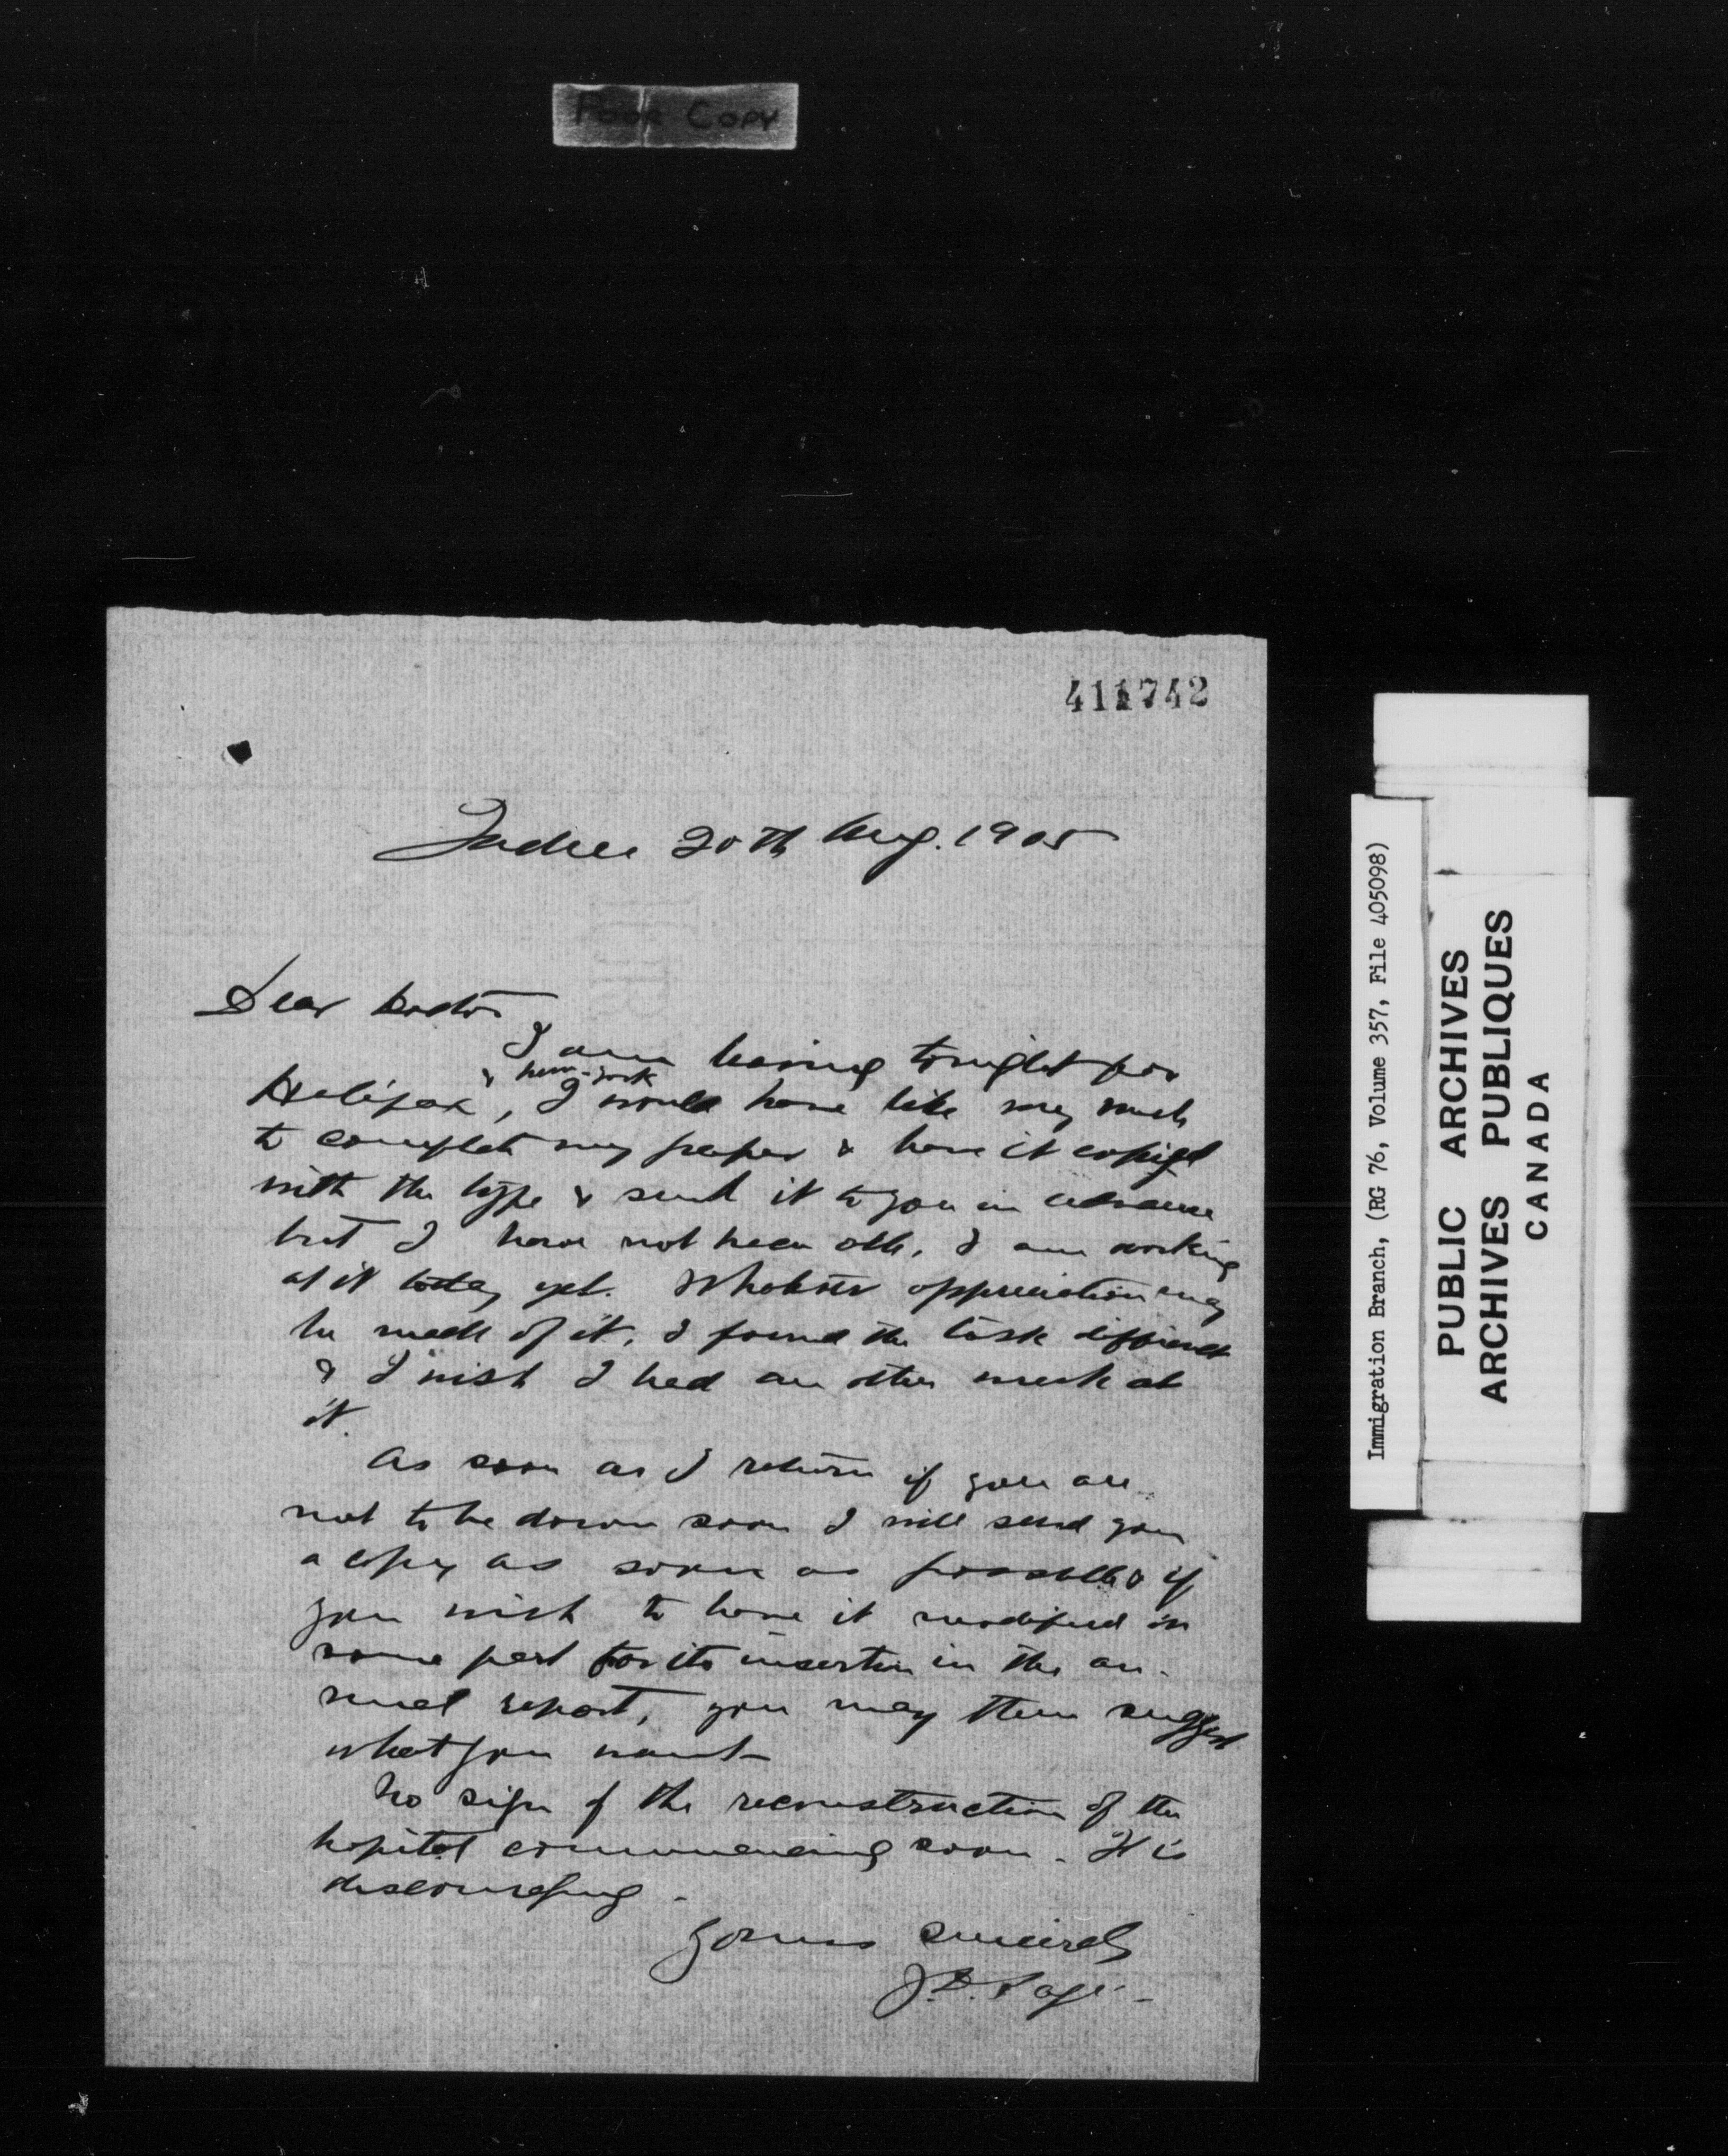 Poor Copy
411742
20th Aug. 1905
Dear Doctor
I am leaving tonight for
& New-York
Halifax, I would have like very much
to complete my paper & have it copied
with the type & send it to you in advance
but I have not been able. I am working
at it today yet. Whatever appreciation may
be made of it, I found the task difficult
& I wish I had an other week at
it.
As soon as I return if you are
not to be down soon I will send you
a copy as soon as possible & if
you wish to have it modified in
some part for its insertion in the an-
nual report, you may then suggest
what you want
No sign of the reconstruction of the
hopital commencing soon. It is
discouraging.
Yours sincerely
J.D. Pagé
Immigration Branch, (RG 76, Volume 357, File 405098)
PUBLIC ARCHIVES
ARCHIVES PUBLIQUES
CANADA